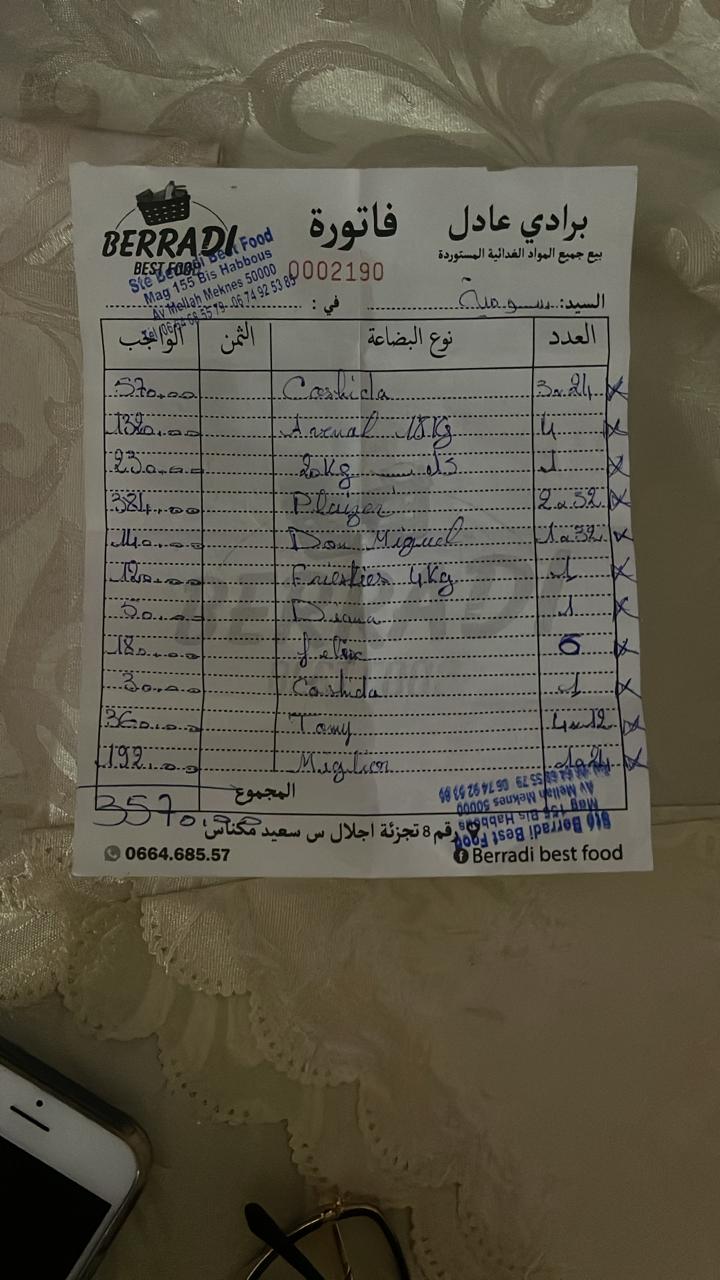 BERRADI
BEST FOOD
فاتورة
برادي عادل
بيع جميع المواد الغذائية المستوردة
Sté Berradi Best Food
Mag 155 Bis Habbous
Av Mellah Meknes 50000
06 74 92 53 89
0002190
السيد: سومية في :
العدد نوع البضاعة الثمن الواجب
570,00 Cashida 3x24 x
132,00 18Kg 4 x
230,00 20Kg 1 x
384,00 2x32 x
140,00 Don Miguel 1x32 x
120,00 Frieskies 4Kg 1 x
50,00 Diana 1 x
180,00 felix 6 x
30,00 Cashida 1 x
360,00 Tomy 4x12 x
192,00 Miglior 1x24 x
المجموع
3570,00
Sté Berradi Best Food
Mag 155 Bis Habbous
Av Mellah Meknes 50000
06 74 92 53 89
رقم 8 تجزئة اجلال س سعيد مكناس
0664.685.57
Berradi best food